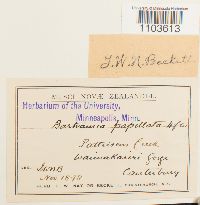 1103613
T.W.N. Beckett
MUSCI NOVÆ ZEALANDIÆ.
Herbarium of the University,
Minneapolis, Minn.
Bartramia papillata
Patterson's Creek
Waimakariri Gorge
Canterbury
Nov 1890